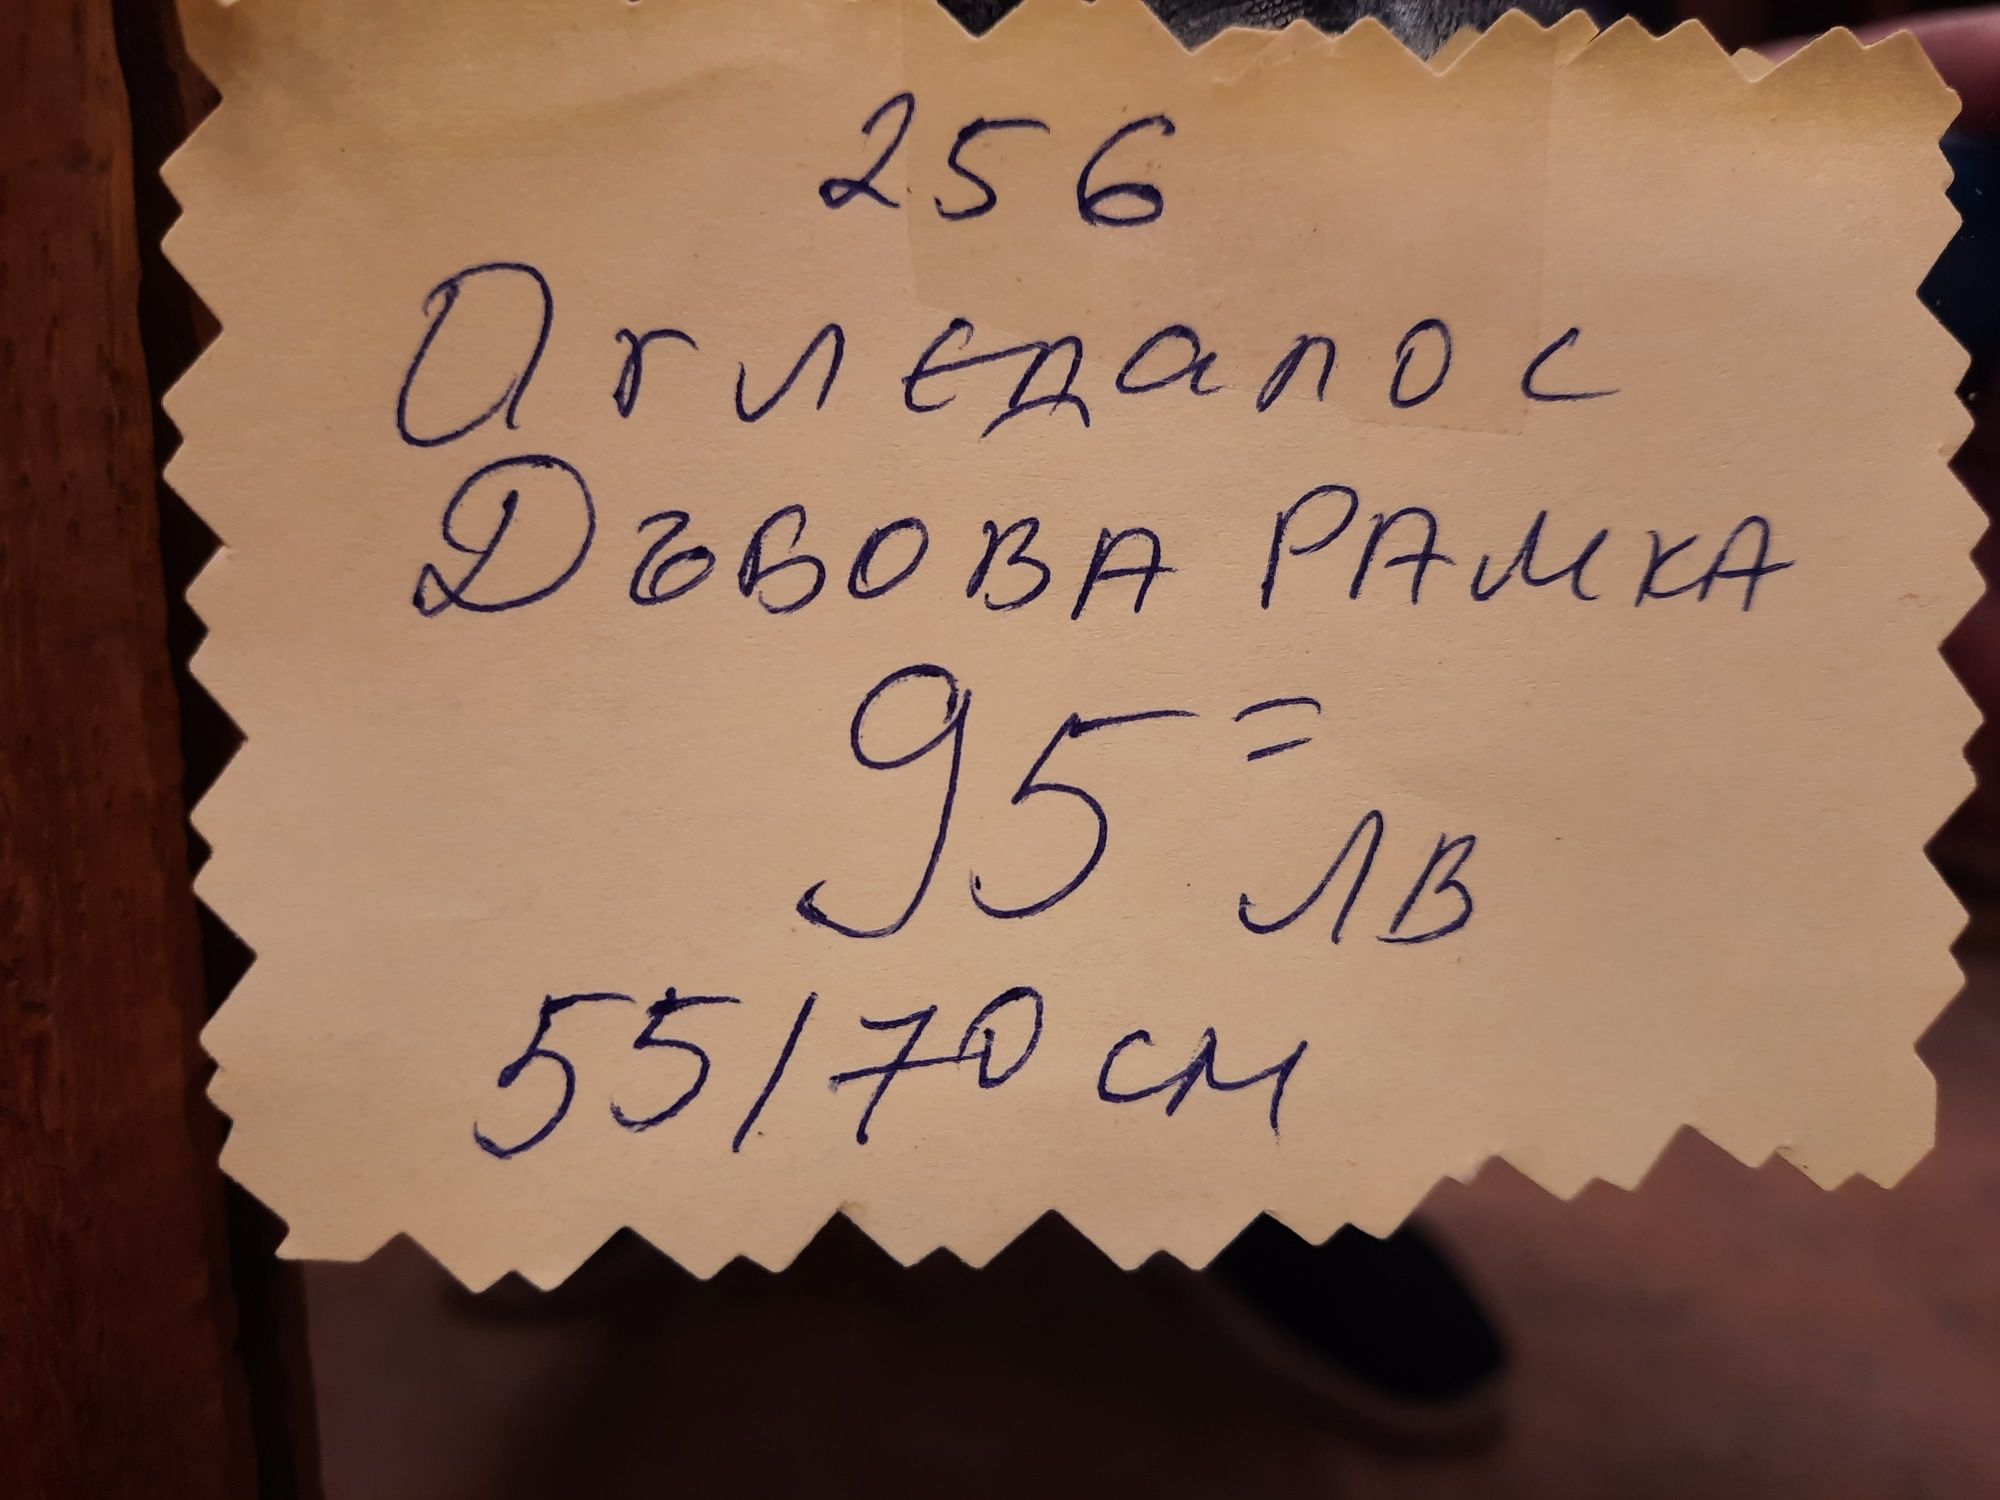 256
Огледало с
Дъбова РАМКА
95= лв
55/70 см